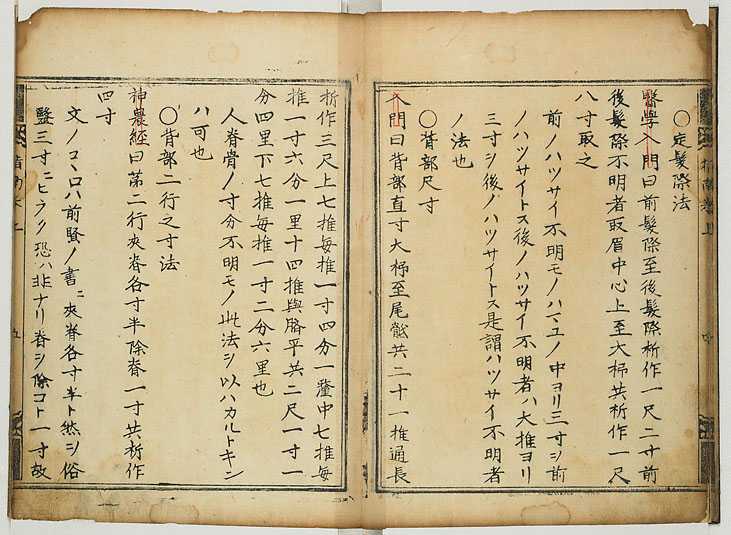 ○定髮際法
醫學入門曰前髮際至後髮際析作一尺二寸前
後髮際不明者取眉中心上至大杼共析作一尺
八寸取之
前ノハツサイ不明モノハマユノ中ヨリ三寸ヲ前
ノハツサイトス後ノハツサイ不明者ハ大推ヨリ
三寸ヲ後ノハツサイトス是謂ハツサイ不明者
ノ法也
○背部尺寸
入門曰背部直寸大杼至尾骶共二十一推通長
析作三尺上七推每推一寸四分一釐中七推每
推一寸六分一里十四推與臍平共二尺一寸一
分四里下七推每推一寸二分六里也
人脊骨ノ寸分不明モノ此法ヲ以ハカルトキン
ハ可也
○背部二行之寸法
神農經曰第二行夾脊各寸半除脊一寸共析作
四寸
文ノコヽロハ前賢ノ書ニ夾脊各寸半ト然ヲ俗
醫三寸ニヒラク恐ハ非ナリ脊ヲ除コト一寸故
五